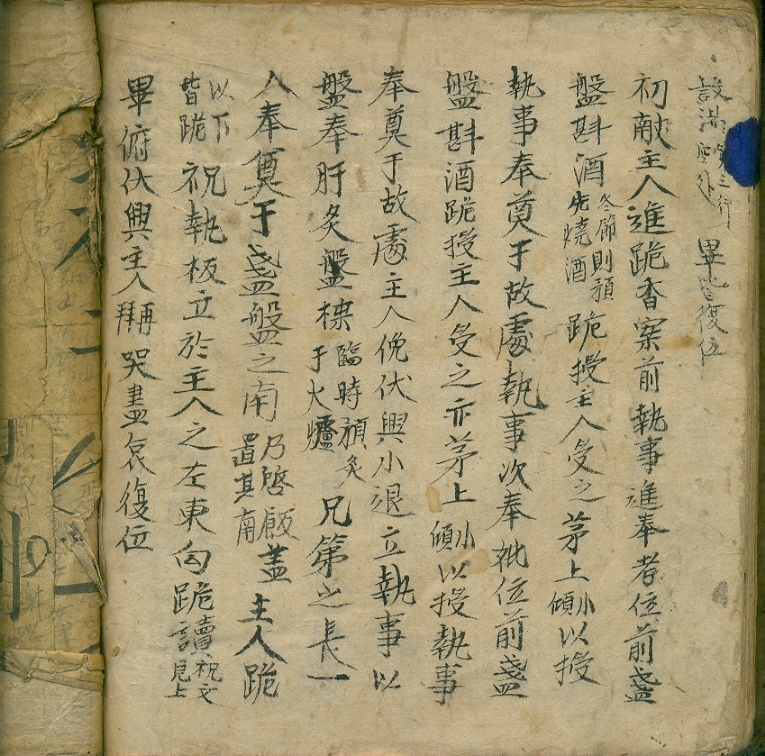 設三行畢皆復位
初献主人進跪香案前執事進奉考位前盞
盤斟酒冬節則預先燒酒跪授主人受之茅上小傾以授
執事奉奠于故處執事次奉妣位前盞
盤斟酒跪授主人受之亦茅上小傾以授執事
奉奠于故處主人俛伏興小退立執事以
盤奉肝炙盤楪臨時預炙于火爐兄第之長一
人奉奠于盞盤之南乃啓飯置其南蓋主人跪
以下皆跪祝執板立於主人之左東向跪讀祝文見上
畢俯伏興主人再拜哭盡哀復位